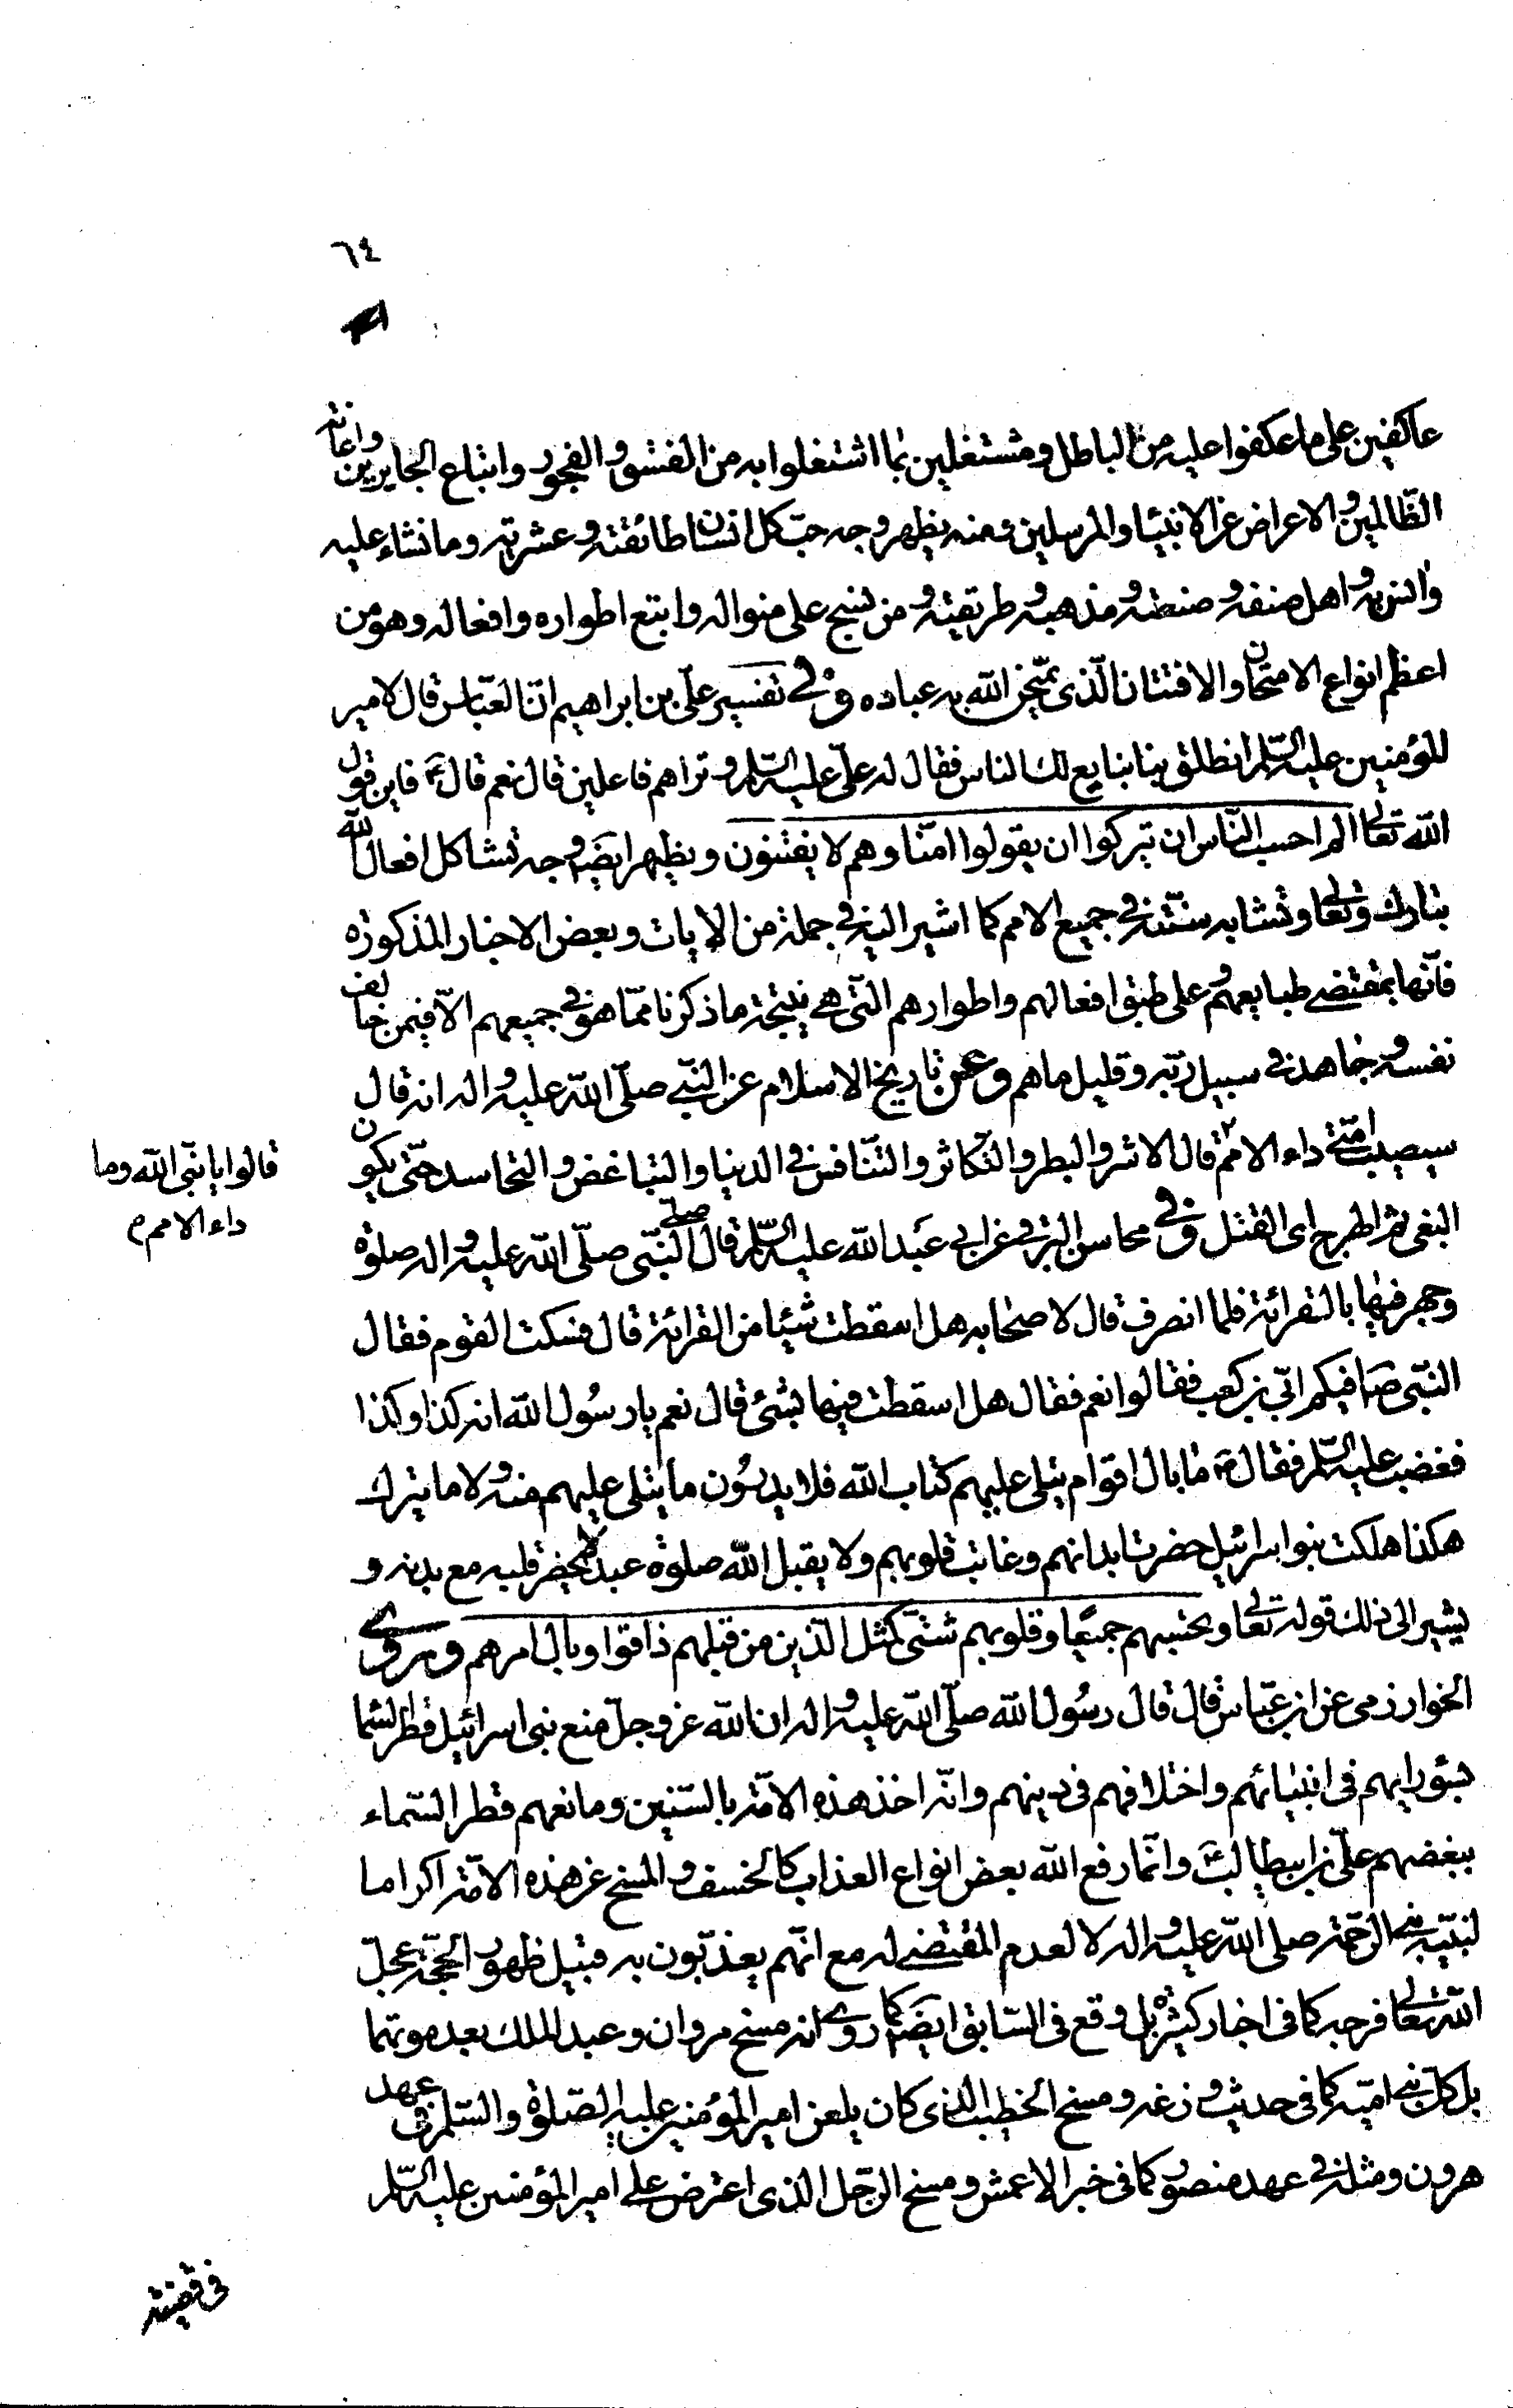 ٦٤
عاكفين على ما عكفوا عليه من الباطل ومشتغلين بما اشتغلوا به من الفسق والفجور واتباع الجايرين واعانة
الظّالمين والاعراض عن الانبياء والمرسلين ومنه يظهر وجه حبّ كل انسان طائفته وعشيرته وما نشاء عليه
والتزيه واهل صنفه وصنعته ومذهبه وطريقته ومن نسج على منواله واتبع اطواره وافعاله وهو من
اعظم انواع الامتحان والافتتان الّذى يمتحن الله به عباده وفي تفسير علّى بن ابراهيم انّ العبّاس قال لامير
المؤمنين عليه السّلم انطلق بنا نبايع لك الناس فقال له علّى عليه السّلم وتراهم فاعلين قال نعم قال ع فاين قول
الله تعالى الم احسب النّاس ان يتركوا ان يقولوا امنّا وهم لا يفتنون ويظهر ايضا وجه تشاكل افعال الله
تبارك وتعالى وتشابه سنّته في جميع الامم كما اشير اليه في جملة من الايات وبعض الاخبار المذكورة
فانّها بمقتضى طبايعهم وعلى طبق افعالهم واطوارهم الّتى هي نتيجة ما ذكرنا ممّا هو في جميعهم الّا فيمن خالف
نفسه وجاهد في سبيل ربّه وقليل ما هم وعن تاريخ الاسلام عن النبّي صلّى الله عليه واله انه قال
سيصيب امّتى داء الامم قال الاشر والبطر والتّكاثر والتّنافس في الدنيا والتباغض والتحاسد حتّى يكون
قالوا يا نبّى الله وما
داء الامم م
البغى ثم الطرح اى القتل وفي محاسن البرقي عن ابي عبد الله عليه السّلم قال صلّى النّبى صلّى الله عليه واله صلوة
وجهر فيها بالقرائة فلما انصرف قال لاصحابه هل اسقطت شيئا من القرائة قال فسكت القوم فقال
النبّى ص افيكم ابّى بن كعب فقالوا نعم فقال هل اسقطت فيها بشئ قال نعم يا رسول الله انه كذا وكذا
فغضب عليه السّلم فقال ص ما بال اقوام يتلى عليهم كتاب الله فلا يدرون ما يتلى عليهم منه ولا ما يترك
هكذا هلكت بنوا اسرائيل حضرت ابدانهم وغابت قلوبهم ولا يقبل الله صلوة عبد لا يحضر قلبه مع بدنه و
يشير الى ذلك قوله تعالى وتحسبهم جميعًا وقلوبهم شتّى كمثل الذين من قبلهم ذاقوا وبال امرهم وروى
الخوارزمى عن ابن عبّاس قال قال رسُول الله صلّى الله عليه واله ان الله عز وجلّ منع بنى اسرائيل قطر السّماء
بسؤ رايهم فى انبيائهم واختلافهم فى دينهم وانّه اخذ هذه الامّة بالسّنين ومانعهم قطر السّماء
ببغضهم علّى بن ابيطالب ع وانّما رفع الله بعض انواع العذاب كالخسف والمسخ عن هذه الامّة اكراما
لنبيّه نبي الرّحمة صلى الله عليه واله لا لعدم المقتضى له مع انّهم يعذّبون به قبيل ظهور الحجّة عجّل
الله تعالى فرجه كما فى اخبار كثيرة بل وقع فى السّابق ايضا كما روى انه مسخ مروان وعبد الملك بعد موتهما
بل كلّ بنى اميّه كما فى حديث وزغه ومسخ الخطيب الذى كان يلعن امير المؤمنين عليه الصّلوة والسّلم في عهد
هرون ومثله في عهد منصور كما فى خبر الاعمش ومسخ الرّجل الذى اعترض على امير المؤمنين عليه السّلم
فى قضيّة